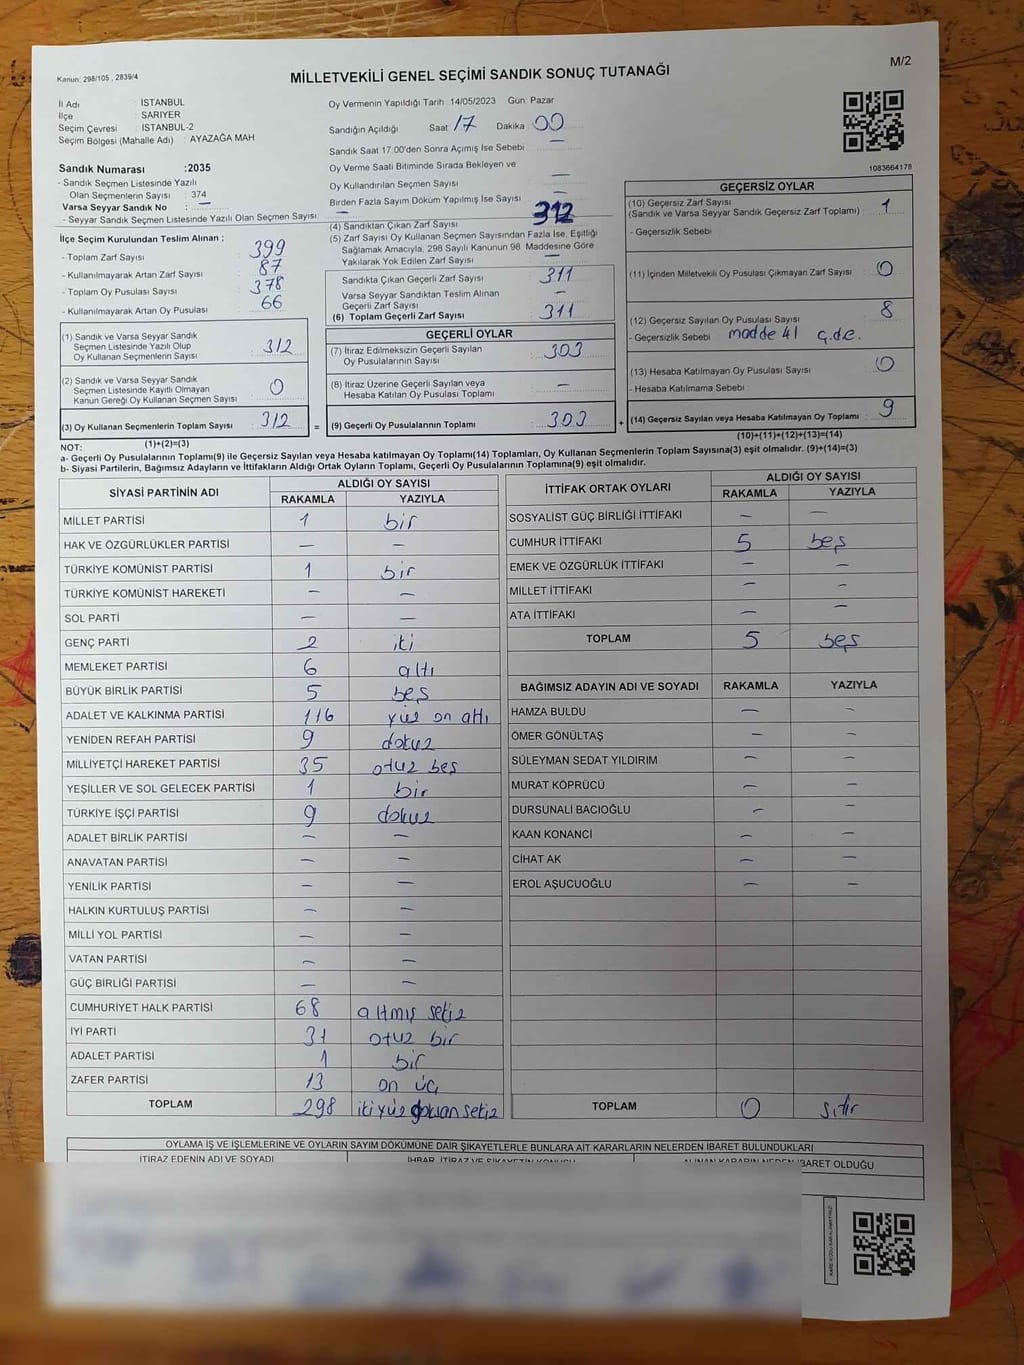 M/2
Kanun: 298/105 , 2839/4
MİLLETVEKİLİ GENEL SEÇİMİ SANDIK SONUÇ TUTANAĞI
İl Adı : İSTANBUL
İlçe : SARIYER
Seçim Çevresi : İSTANBUL-2
Seçim Bölgesi (Mahalle Adı) : AYAZAĞA MAH
Sandık Numarası :2035
- Sandık Seçmen Listesinde Yazılı
Olan Seçmenlerin Sayısı : 374
Varsa Seyyar Sandık No : —
- Seyyar Sandık Seçmen Listesinde Yazılı Olan Seçmen Sayısı : —
Oy Vermenin Yapıldığı Tarih :14/05/2023 Gün: Pazar
Sandığın Açıldığı Saat 17 Dakika 00
Sandık Saat 17:00'den Sonra Açımış İse Sebebi : —
Oy Verme Saati Bitiminde Sırada Bekleyen ve
Oy Kullandırılan Seçmen Sayısı : —
Birden Fazla Sayım Döküm Yapılmış İse Sayısı : —
1083664178
İlçe Seçim Kurulundan Teslim Alınan :
- Toplam Zarf Sayısı : 399
- Kullanılmayarak Artan Zarf Sayısı : 87
- Toplam Oy Pusulası Sayısı : 378
- Kullanılmayarak Artan Oy Pusulası : 66
(1) Sandık ve Varsa Seyyar Sandık
Seçmen Listesinde Yazılı Olup
Oy Kullanan Seçmenlerin Sayısı : 312
(2) Sandık ve Varsa Seyyar Sandık
Seçmen Listesinde Kayıtlı Olmayan
Kanun Gereği Oy Kullanan Seçmen Sayısı : 0
(3) Oy Kullanan Seçmenlerin Toplam Sayısı : 312
(1)+(2)=(3)
(4) Sandıktan Çıkan Zarf Sayısı : 312
(5) Zarf Sayısı Oy Kullanan Seçmen Sayısından Fazla İse, Eşitliği
Sağlamak Amacıyla, 298 Sayılı Kanunun 98. Maddesine Göre
Yakılarak Yok Edilen Zarf Sayısı : —
Sandıkta Çıkan Geçerli Zarf Sayısı : 311
Varsa Seyyar Sandıktan Teslim Alınan
Geçerli Zarf Sayısı : —
(6) Toplam Geçerli Zarf Sayısı : 311
GEÇERLİ OYLAR
(7) İtiraz Edilmeksizin Geçerli Sayılan
Oy Pusulalarının Sayısı : 303
(8) İtiraz Üzerine Geçerli Sayılan veya
Hesaba Katılan Oy Pusulaları Toplamı : —
= (9) Geçerli Oy Pusulalarının Toplamı : 303 +
GEÇERSİZ OYLAR
(10) Geçersiz Zarf Sayısı : 1
(Sandık ve Varsa Seyyar Sandık Geçersiz Zarf Toplamı)
- Geçersizlik Sebebi :
(11) İçinden Milletvekili Oy Pusulası Çıkmayan Zarf Sayısı : 0
(12) Geçersiz Sayılan Oy Pusulası Sayısı : 8
- Geçersizlik Sebebi : madde 41
(13) Hesaba Katılmayan Oy Pusulası Sayısı : 0
- Hesaba Katılmama Sebebi :
(14) Geçersiz Sayılan veya Hesaba Katılmayan Oy Toplamı : 9
(10)+(11)+(12)+(13)=(14)
NOT:
a- Geçerli Oy Pusulalarının Toplamı(9) ile Geçersiz Sayılan veya Hesaba katılmayan Oy Toplamı(14) Toplamları, Oy Kullanan Seçmenlerin Toplam Sayısına(3) eşit olmalıdır. (9)+(14)=(3)
b- Siyasi Partilerin, Bağımsız Adayların ve İttifakların Aldığı Ortak Oyların Toplamı, Geçerli Oy Pusulalarının Toplamına(9) eşit olmalıdır.
SİYASİ PARTİNİN ADI ALDIĞI OY SAYISI
RAKAMLA YAZIYLA
MİLLET PARTİSİ 1 bir
HAK VE ÖZGÜRLÜKLER PARTİSİ — —
TÜRKİYE KOMÜNİST PARTİSİ 1 bir
TÜRKİYE KOMÜNİST HAREKETİ — —
SOL PARTİ — —
GENÇ PARTİ 2 iki
MEMLEKET PARTİSİ 6 altı
BÜYÜK BİRLİK PARTİSİ 5 beş
ADALET VE KALKINMA PARTİSİ 116 yüz on altı
YENİDEN REFAH PARTİSİ 9 dokuz
MİLLİYETÇİ HAREKET PARTİSİ 35 otuz beş
YEŞİLLER VE SOL GELECEK PARTİSİ 1 bir
TÜRKİYE İŞÇİ PARTİSİ 9 dokuz
ADALET BİRLİK PARTİSİ — —
ANAVATAN PARTİSİ — —
YENİLİK PARTİSİ — —
HALKIN KURTULUŞ PARTİSİ — —
MİLLİ YOL PARTİSİ — —
VATAN PARTİSİ — —
GÜÇ BİRLİĞİ PARTİSİ — —
CUMHURİYET HALK PARTİSİ 68 altmış sekiz
İYİ PARTİ 31 otuz bir
ADALET PARTİSİ 1 bir
ZAFER PARTİSİ 13 on üç
TOPLAM 298 iki yüz doksan sekiz
İTTİFAK ORTAK OYLARI ALDIĞI OY SAYISI
RAKAMLA YAZIYLA
SOSYALİST GÜÇ BİRLİĞİ İTTİFAKI — —
CUMHUR İTTİFAKI 5 beş
EMEK VE ÖZGÜRLÜK İTTİFAKI — —
MİLLET İTTİFAKI — —
ATA İTTİFAKI — —
TOPLAM 5 beş
BAĞIMSIZ ADAYIN ADI VE SOYADI RAKAMLA YAZIYLA
HAMZA BULDU — —
ÖMER GÖNÜLTAŞ — —
SÜLEYMAN SEDAT YILDIRIM — —
MURAT KÖPRÜCÜ — —
DURSUNALİ BACIOĞLU — —
KAAN KONANCİ — —
CİHAT AK — —
EROL AŞUCUOĞLU — —
TOPLAM 0 sıfır
OYLAMA İŞ VE İŞLEMLERİNE VE OYLARIN SAYIM DÖKÜMÜNE DAİR ŞİKAYETLERLE BUNLARA AİT KARARLARIN NELERDEN İBARET BULUNDUKLARI
İTİRAZ EDENİN ADI VE SOYADI İHBAR, İTİRAZ VE ŞİKAYETİN KONUSU ALINAN KARARIN NEDEN İBARET OLDUĞU